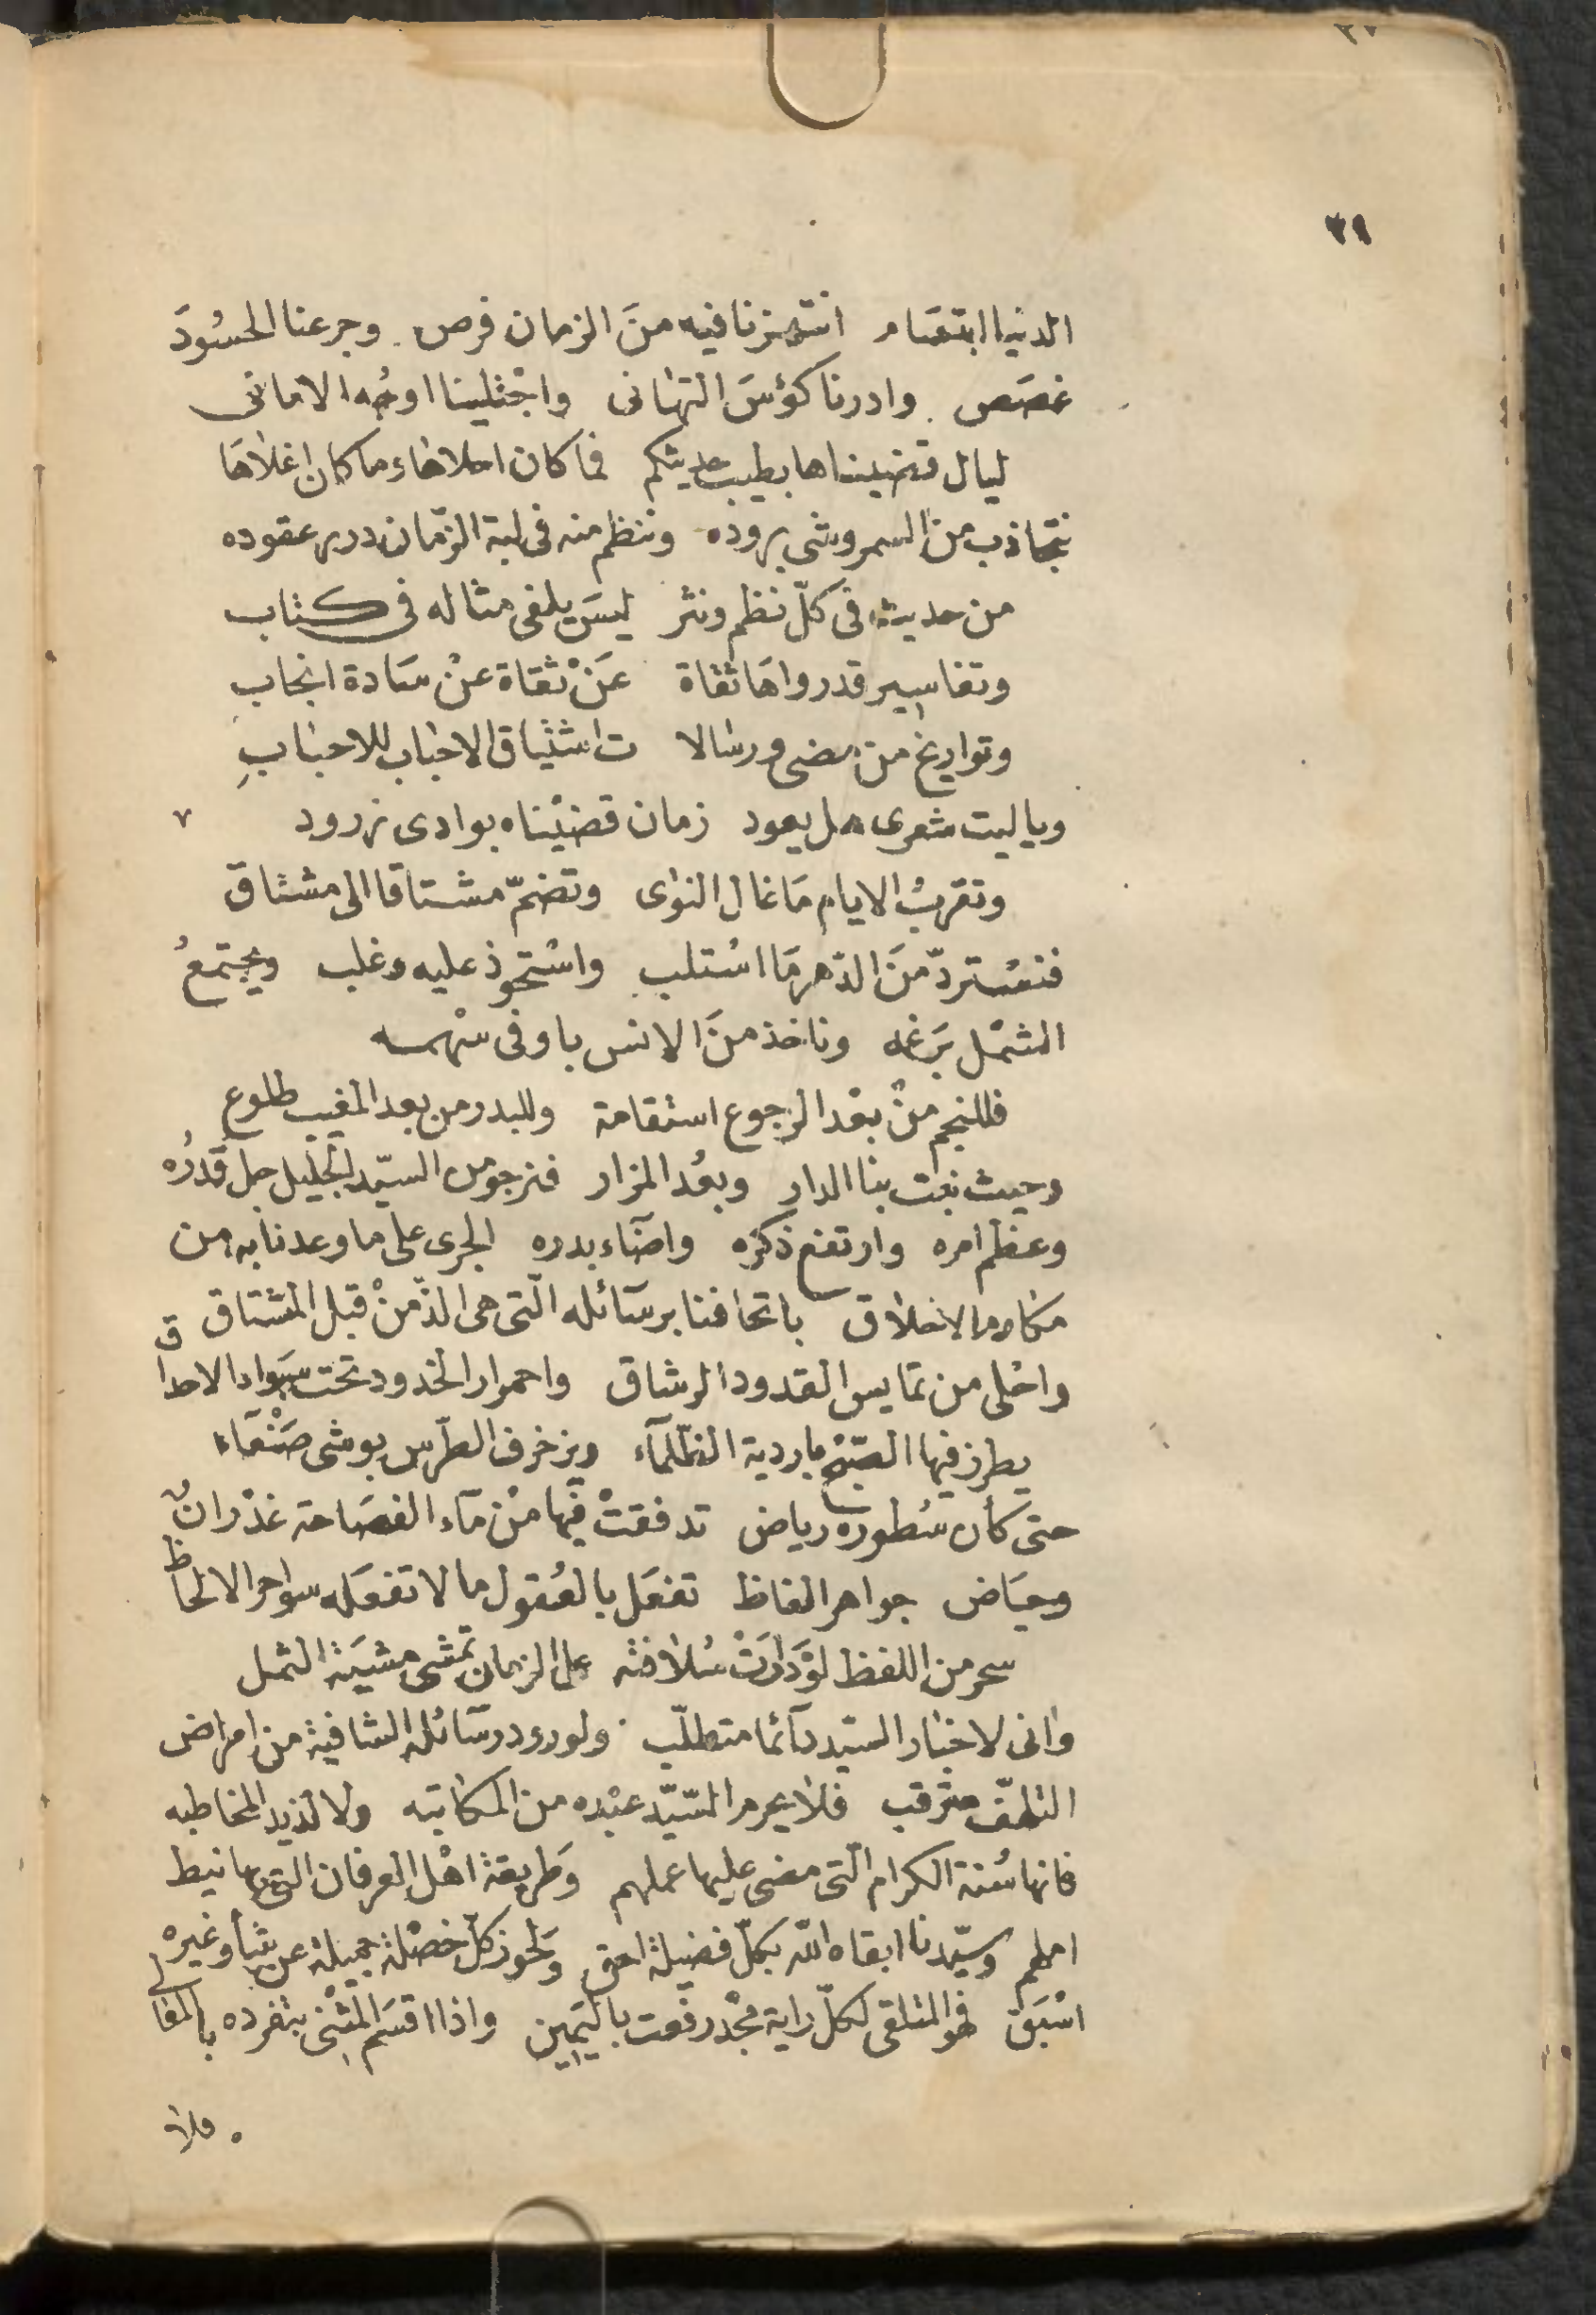 ٣٩
الدنيا ابتسام انتهزنا فيه منَ الزمان فرص وجرعنا الحسُودَ
غصَص وادرنا كؤسَ التهانى واجْتلينا اوجُه الامانى
ليال قضيناها بطيب حديثكم فما كان احلاها وما كان اغلاها
نتجاذب من السمر وشى بروده وننظم منه فى لبة الزّمان درر عقوده
من حديث فى كلّ نظم ونثر ليسَ يلفى مثاله فى كتاب
وتفاسير قد رواهَا ثقاة عَنْ ثقاة عنْ سَادة انجاب
وتواريخ من مضى ورسالا ت اشتياق الاحباب للاحبابِ
وياليت شعرى هل يعود زمان قضيْناه بوادى زرود
وتقربُ الايام مَا غال النوى وتضمّ مشتاقا الى مشتاق
فنسْتردّ منَ الدّهر مَا اسْتلب واسْتحوذ عليه وغلب ويجتمعُ
الشمْل برَغمه وناخذ منَ الانس باوفى سهْمه
فللنجم منْ بعْد الرجوع استقامة وللبدر من بعد المغيب طلوع
وحيث نبت بنا الدار وبعُد المزار فنرجو من السيّد الجليل جل قدرُه
وعظم امره وارتفع ذكرُه واضآء بدره الجرى على ما وعدنا به من
مكارم الاخلاق باتحافنا برسَآئله الّتى هى الذّ منْ قبل المشتاق
واحْلى من تمايس القدود الرشاق واحمرار الخدود تحت سَواد الاحداق
يطرز فيها الصّبْح باردية الظّلمآء ويزخرف الطّرس بوشى صَنْعَآء
حتى كأن سُطوره رياض تدفقتْ فيها منْ مآء الفصَاحة غدْرانٌ
وحيَاض جواهر الفاظ تفعَل بالعُقول ما لا تفعَله سواحر الالحاظ
سحر من اللفظ لوْ دَارَتْ سُلافته على الزمان تمشّى مشيَة الثمل
وانى لاخبار السّيد دآئما متطلّب ولورود رسآئله الشافية من امراض
التلهّف مترقب فلا يحرم السّيّد عبْده من المكاتبه ولا لذيد المخاطبه
فانها سُنة الكرام الّتى مضى عليها عملهم وَطريقة اهْل العرفان التى بها نيط
املهم وسيّدنا ابقاه اللّه بكلّ فضيلة احق ولحوز كلّ خصْلة جميلة عن شأو غيره
اسْبَق فهو المتلقى لكلّ راية مجْد رفعت باليَمِين واذا اقسَم المثْنى بتفرده بالمعالى
فلا